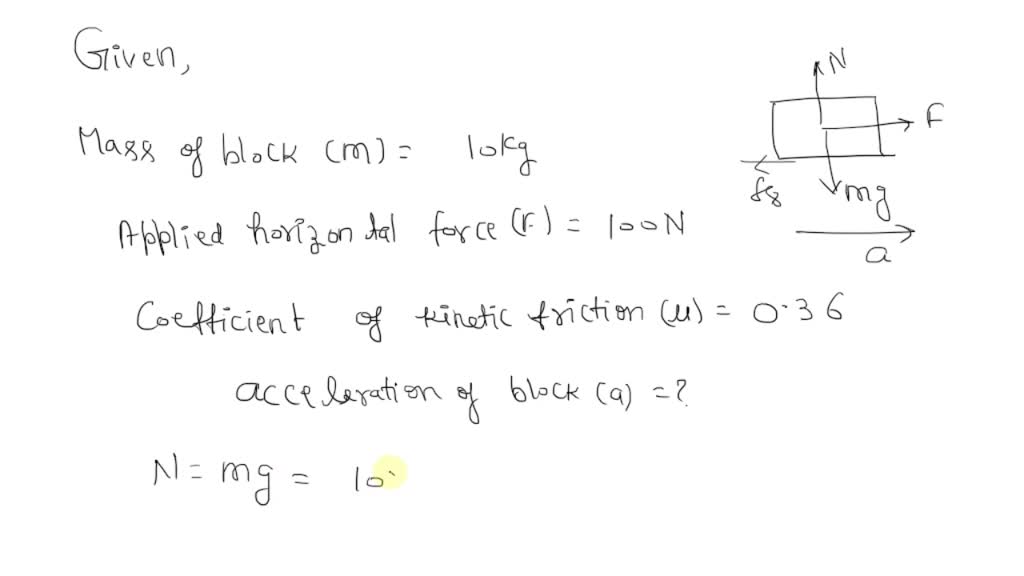 Given,
Mass of block (m) = 10kg
Applied horizontal force (F) = 100N
Coefficient of kinetic friction (μ) = 0.36
acceleration of block (a) = ?
N = mg = 10
N
F
mg
a